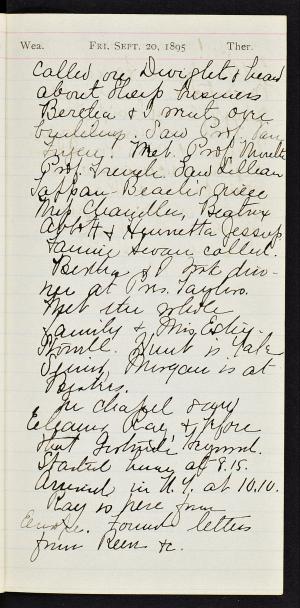 Wea. FRI. SEPT. 20, 1895 Ther.
called on Dwight & heard
about Sheep business
Bertha & I went over
building. Saw Prof. Van
Met Prof.
Prof. French. Saw Lillian
Tappan - Beach's niece
Miss Chandler, Beatrix
Abbott & Henrietta Jessup
Fannie Swan called.
Bertha & I took din-
ner at Prs. Taylors.
Met the whole
family & Miss
Hunt is Yale
Senior, Morgan is at
In chapel saw
Kay &
that
Started away at 8.15.
Arrived in N.Y. at 10.10.
Kay is here from
Found letters
from &c.